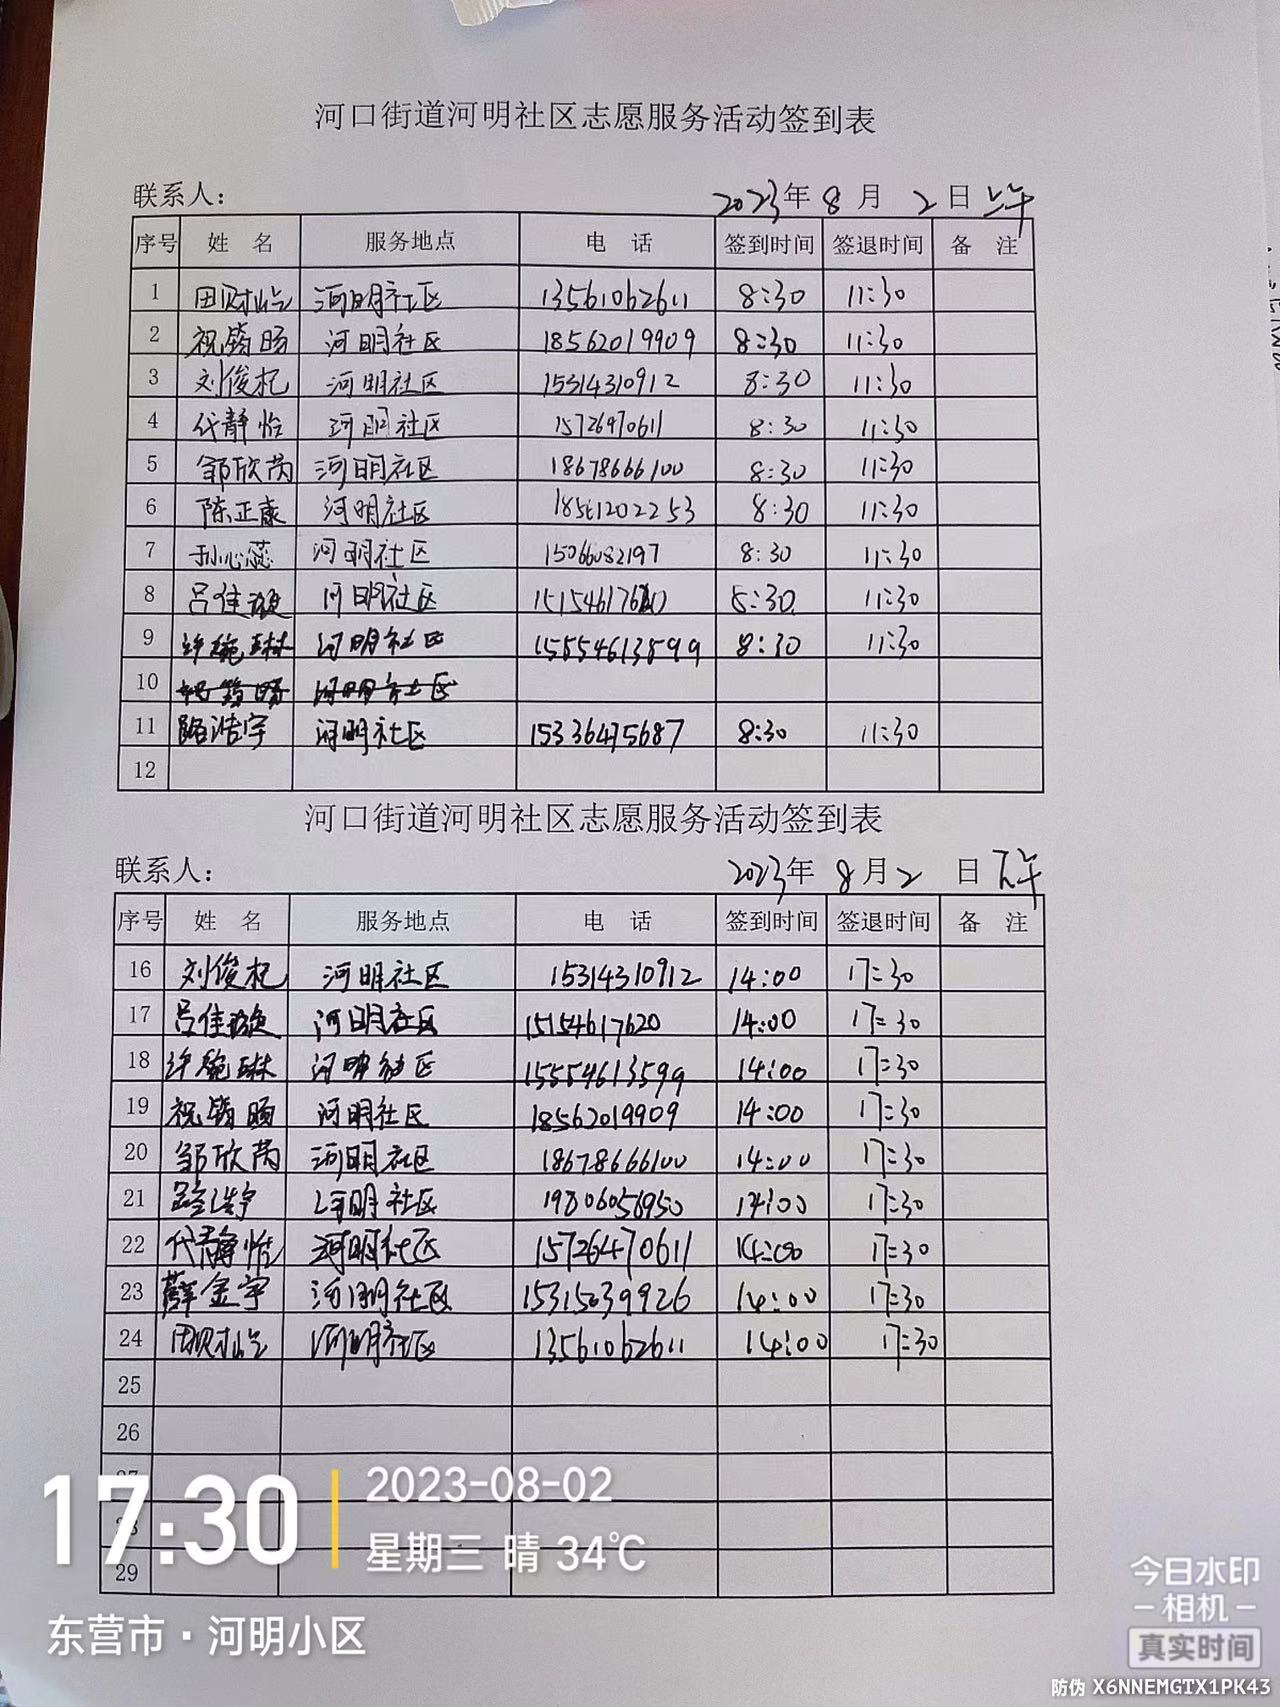 河口街道河明社区志愿服务活动签到表
联系人： 2023年 8月 2日 上午
序号 姓 名 服务地点 电 话 签到时间 签退时间 备 注
1 田财屹 河明社区 13561062611 8:30 11:30
2 祝筠旸 河明社区 18562019909 8:30 11:30
3 刘俊杞 河明社区 15314310912 8:30 11:30
4 代静怡 河明社区 15726470611 8:30 11:30
5 邹欣芮 河明社区 18678666100 8:30 11:30
6 陈正康 河明社区 18561202253 8:30 11:30
7 孙心蕊 河明社区 15066082197 8:30 11:30
8 吕佳璇 河明社区 8:30 11:30
9 许婉琳 河明社区 15554613599 8:30 11:30
10 河明社区
11 路浩宇 河明社区 15336475687 8:30 11:30
12
河口街道河明社区志愿服务活动签到表
联系人： 2023年 8月 2 日 下午
序号 姓 名 服务地点 电 话 签到时间 签退时间 备 注
16 刘俊杞 河明社区 15314310912 14:00 17:30
17 吕佳璇 河明社区 15154617620 14:00 17:30
18 许婉琳 河明社区 15554613599 14:00 17:30
19 祝筠旸 河明社区 18562019909 14:00 17:30
20 邹欣芮 河明社区 18678666100 14:00 17:30
21 路浩宇 河明社区 19806056950 14:00 17:30
22 代静怡 河明社区 15726470611 14:00 17:30
23 薛金宇 河明社区 15315039926 14:00 17:30
24 田财屹 河明社区 13561062611 14:00 17:30
25
26
27
28
29
17:30
2023-08-02
星期三 晴 34℃
东营市·河明小区
今日水印
-相机-
真实时间
防伪 X6NNEMGTX1PK43